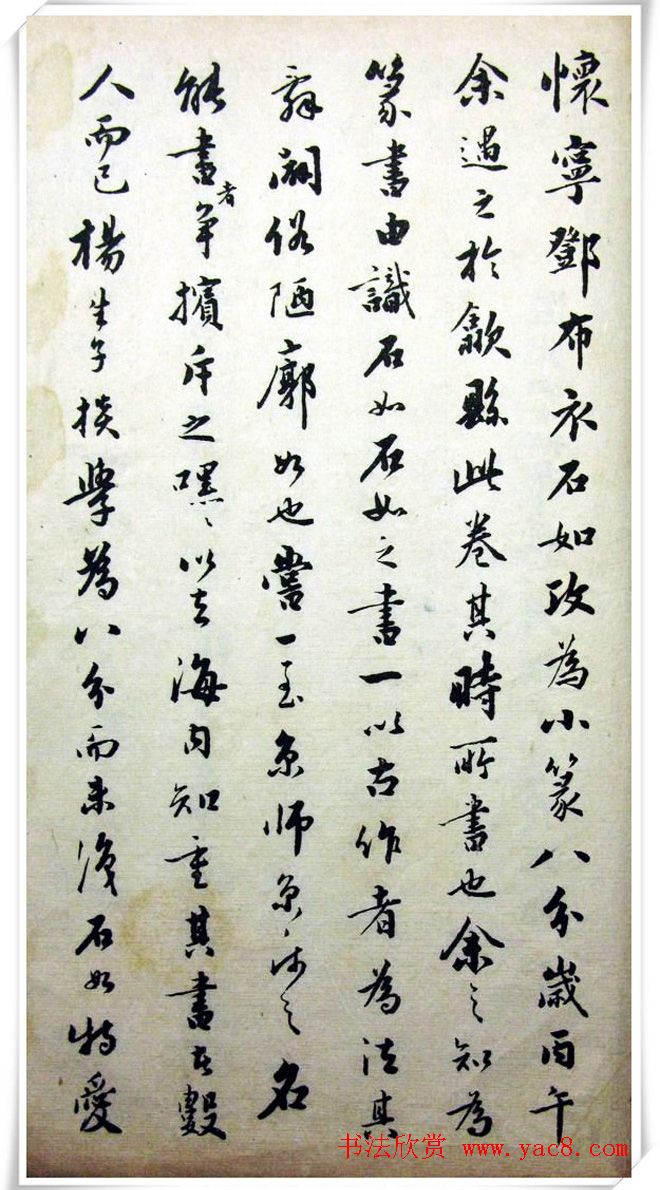 懷寧鄧布衣石如攻為小篆八分歲丙午
余遇之於歙縣此卷其時所書也余之知為
篆書由識石如石如之書一以古作者為法其
辭闢俗陋廓如也嘗一至京師京師之名
能書者爭擯斥之嘿嘿以去海內知重其書者數
人而已楊生子掞學為八分而未復石如特愛
书法欣赏 www.yac8.com